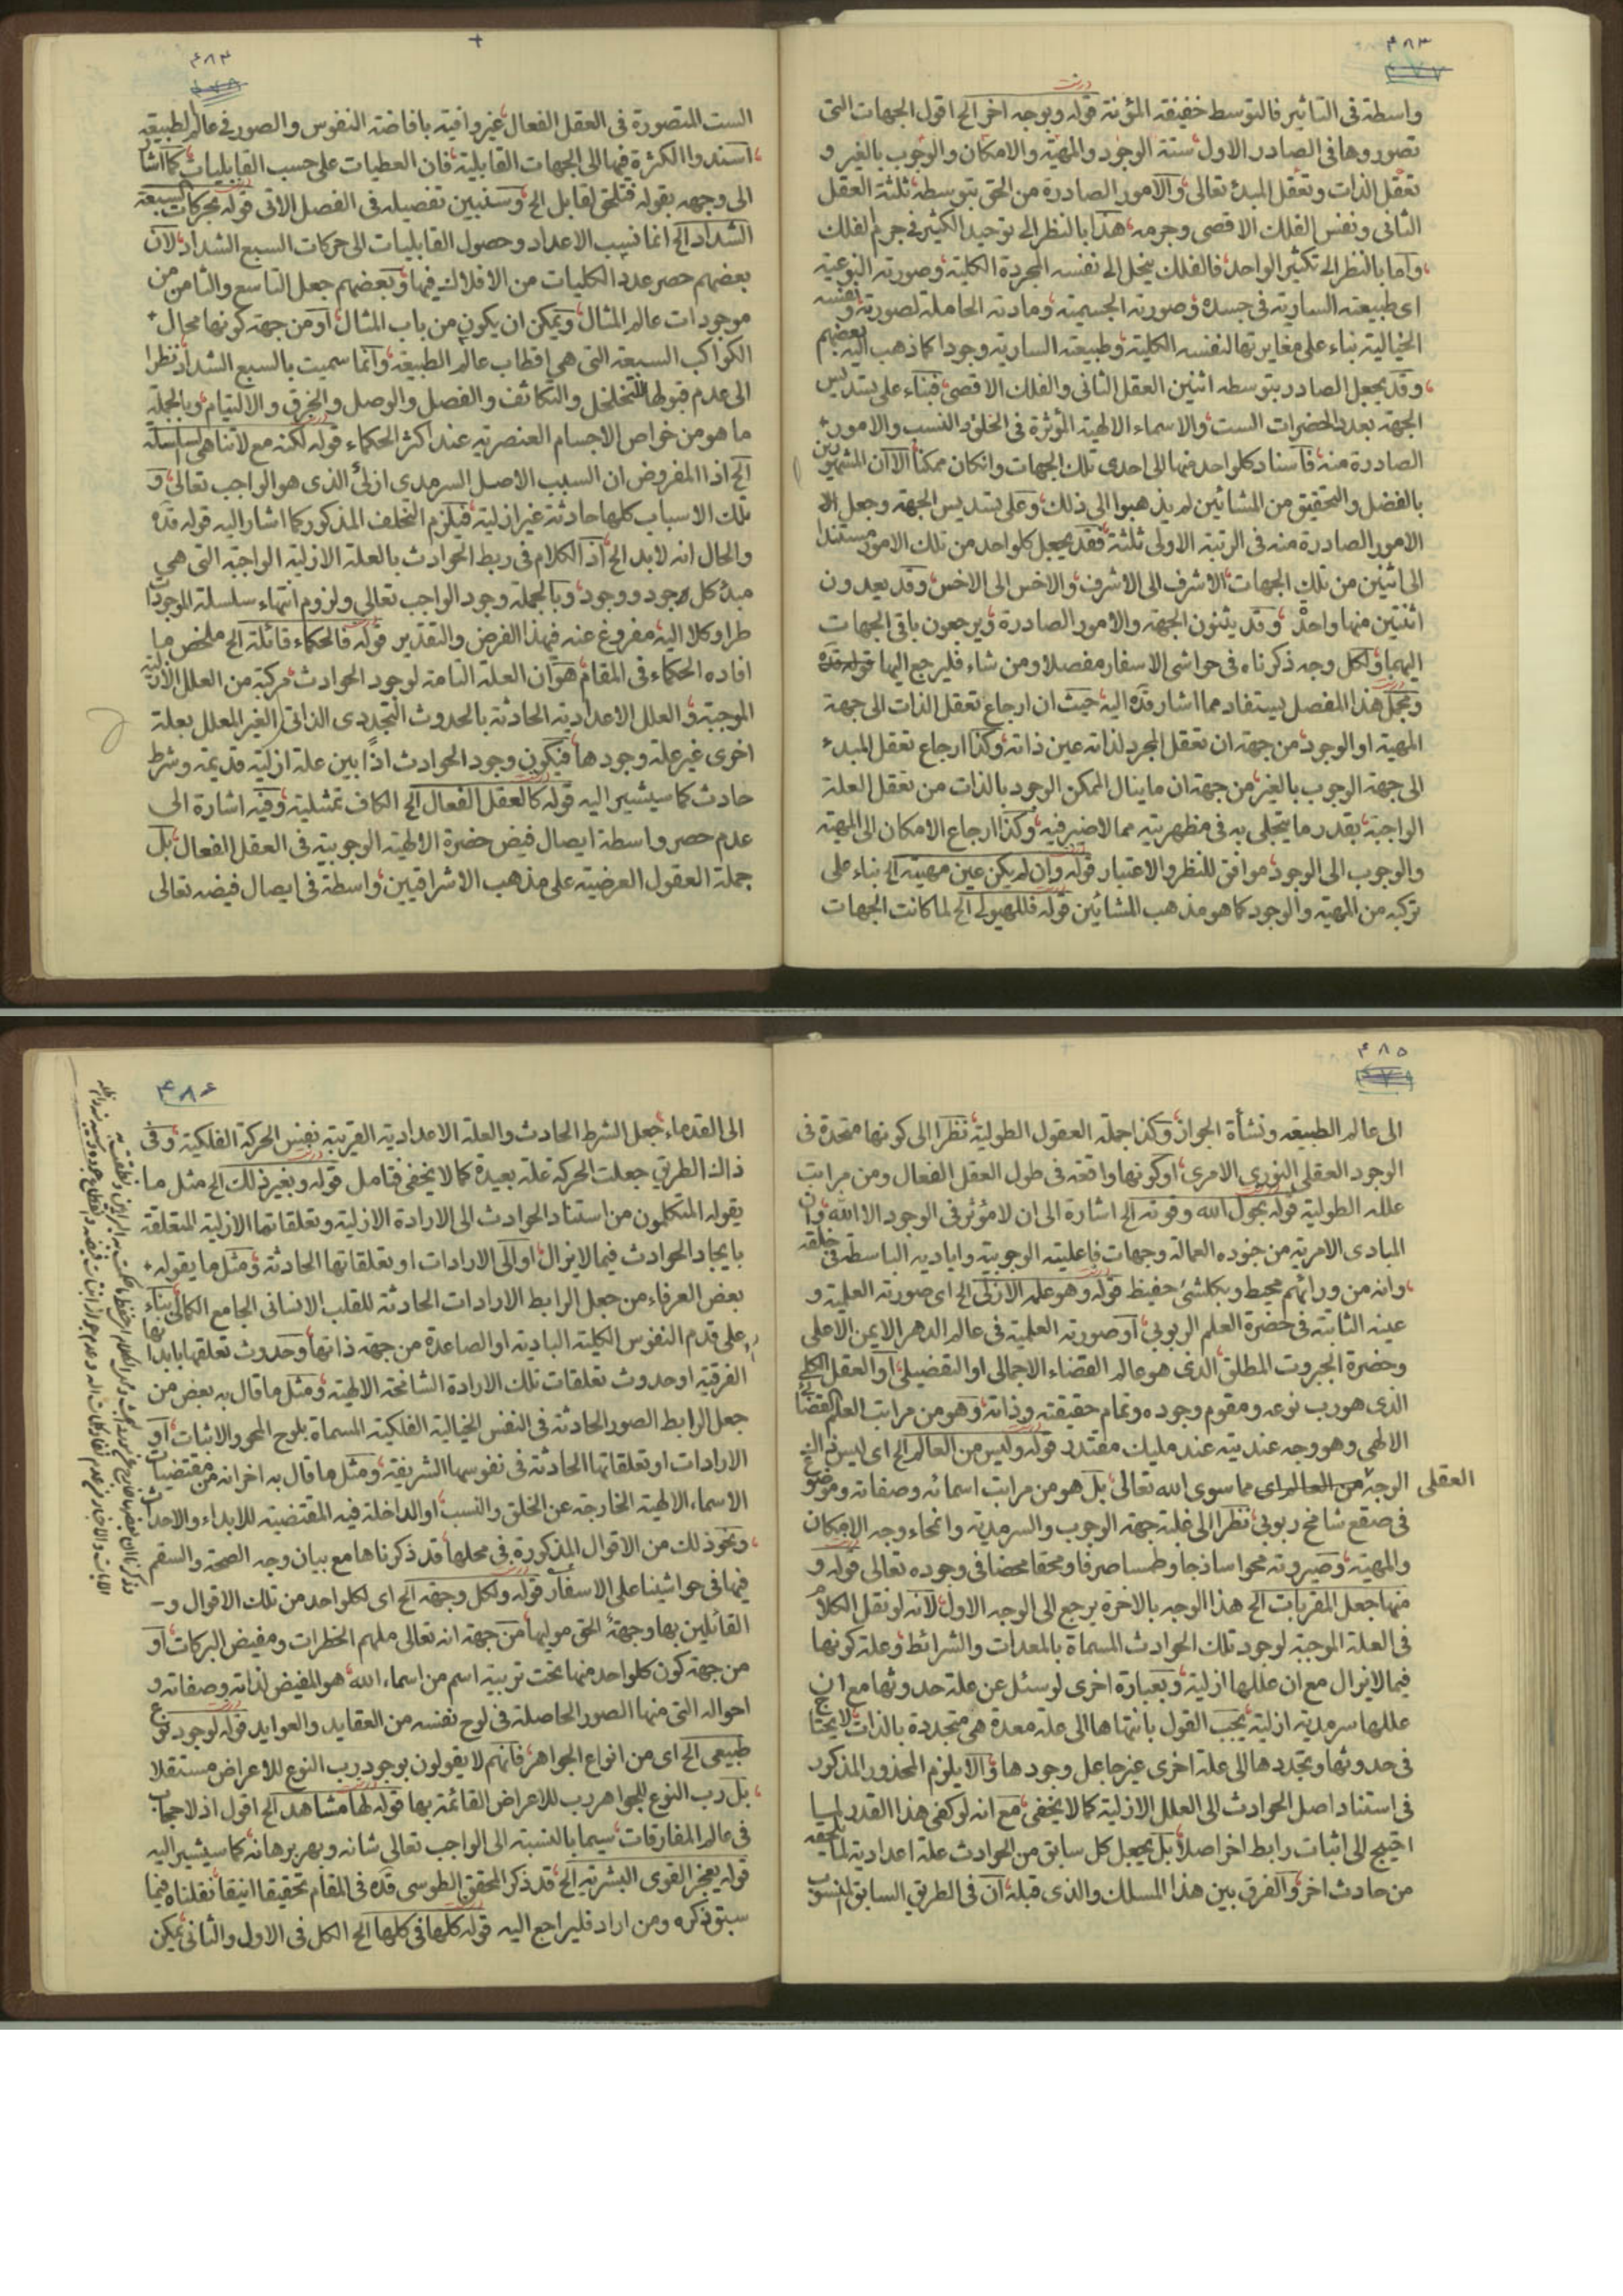 ۴۸۳
واسطة فی التاثیر فالتوسط خفیفة المؤنة قوله وبوجه اخر الخ اقول الجهات التی
تصوروها فی الصادر الاول ستة الوجود والمهیة والامکان والوجوب بالغیر و
تعقل الذات وتعقل المبدء تعالی والامور الصادرة من الحق بتوسطه ثلثة العقل
الثانی ونفس الفلك الاقصی وجرمه هذا بالنظر الی توحید الکثیر فی جرم الفلك
واما بالنظر الی تکثیر الواحد فالفلك ینحل الی نفسه المجردة الکلیة وصورته النوعیة
ای طبیعته الساریة فی جسده وصورته الجسمیة ومادته الحاملة لصورته ونفسه
الخیالیة بناء علی مغایرتها لنفسه الکلیة وطبیعته الساریة وجودا کما ذهب الیه بعضهم
وقد یجعل الصادر بتوسطه اثنین العقل الثانی والفلك الاقصی فبناء علی تسدیس
الجهة بعدد الحضرات الست والاسماء الالهیة المؤثرة فی الخلق والنسب والامور
الصادرة منه فاسناد کلواحد منها الی احدی تلك الجهات وان کان ممکنا الا ان المشهورین
بالفضل والتحقیق من المشائین لم یذهبوا الی ذلك وعلی تسدیس الجهة وجعل
الامور الصادرة منه فی الرتبة الاولی ثلثة فقد یجعل کلواحد من تلك الامور مستندا
الی اثنین من تلك الجهات الاشرف الی الاشرف والاخس الی الاخس وقد یعدون
اثنتین منها واحدة وقد یثنون الجهة والامور الصادرة ویرجعون باقی الجهات
الیهما ولکل وجه ذکرناه فی حواشی الاسفار مفصلا ومن شاء فلیرجع الیها قوله قده
ومجمل هذا المفصل یستفاد مما اشار قده الیه حیث ان ارجاع تعقل الذات الی جهة
المهیة او الوجود من جهة ان تعقل المجرد لذاته عین ذاته وکذا ارجاع تعقل المبدء
الی جهة الوجوب بالغیر من جهة ان ما ینال الممکن الوجود بالذات من تعقل العلة
الواجبة بقدر ما یتجلی به فی مظهریته مما لا ضیر فیه وکذا ارجاع الامکان الی المهیة
والوجوب الی الوجود موافق للنظر والاعتبار قوله وان لم یکن عین مهیته الخ بناء علی
ترکبه من المهیة والوجود کما هو مذهب المشائین قوله فللهیولی الخ لما کانت الجهات
۴۸۴
الست المتصورة فی العقل الفعال غیر وافیة بافاضة النفوس والصور فی عالم الطبیعة
اسندوا الکثرة فیها الی الجهات القابلیة فان العطیات علی حسب القابلیات کما اشار
الی وجهه بقوله فتلقی لقابل الخ وسنبین تفصیله فی الفصل الاتی قوله بحرکات السبعة
الشداد الخ انما نسب الاعداد وحصول القابلیات الی حرکات السبع الشداد لان
بعضهم حصر عدد الکلیات من الافلاك فیها وبعضهم جعل التاسع والثامن من
موجودات عالم المثال ویمکن ان یکون من باب المثال او من جهة کونها محال
الکواکب السبعة التی هی اقطاب عالم الطبیعة وانما سمیت بالسبع الشداد نظرا
الی عدم قبولها للتخلخل والتکاثف والفصل والوصل والخرق والالتیام وبالجملة
ما هو من خواص الاجسام العنصریة عند اکثر الحکماء قوله لکنه مع لا تناهی السلسلة
الخ اذ المفروض ان السبب الاصل السرمدی ازلی الذی هو الواجب تعالی و
تلك الاسباب کلها حادثة غیر ازلیة فیلزم التخلف المذکور کما اشار الیه قوله قده
والحال انه لابد الخ اذ الکلام فی ربط الحوادث بالعلة الازلیة الواجبة التی هی
مبدء کل وجود ووجود وبالجملة وجود الواجب تعالی ولزوم انتهاء سلسلة الموجودات
طرا وکلا الیه مفروغ عنه فی هذا الفرض والتقدیر قوله فالحکماء قائلة الخ ملخص ما
افاده الحکماء فی المقام هو ان العلة التامة لوجود الحوادث مرکبة من العلل الازلیة
الموجبة والعلل الاعدادیة الحادثة بالحدوث التجددی الذاتی الغیر المعلل بعلة
اخری غیر علة وجودها فیکون وجود الحوادث اذا بین علة ازلیة قدیمة وشرط
حادث کما سیشیر الیه قوله کالعقل الفعال الخ الکاف تمثیلیة وفیه اشارة الی
عدم حصر واسطة ایصال فیض حضرة الالهیة الوجوبیة فی العقل الفعال بل
جملة العقول العرضیة علی مذهب الاشراقیین واسطة فی ایصال فیضه تعالی
۴۸۵
الی عالم الطبیعة ونشأة الجواز وکذا جملة العقول الطولیة نظرا الی کونها متحدة فی
الوجود العقلی النوری الامری او کونها واقعة فی طول العقل الفعال ومن مراتب
علله الطولیة قوله بحول الله وقوته الخ اشارة الی ان لا مؤثر فی الوجود الا الله وان
المبادی الامریة من جنوده العمالة وجهات فاعلیته الوجوبیة وایادیه الباسطة فی خلقه
وانه من ورائهم محیط وبکلشئ حفیظ قوله وهو علمه الازلی الخ ای صورته العلمیة و
عینه الثابتة فی حضرة العلم الربوبی او صورته العلمیة فی عالم الدهر الایمن الاعلی
وحضرة الجبروت المطلق الذی هو عالم القضاء الاجمالی او التفصیلی او العقل الکلی
الذی هو رب نوعه ومقوم وجوده وتمام حقیقته وذاته وهو من مراتب العلم القضائی
الالهی وهو وجه عندیته عند ملیك مقتدر قوله ولیس من العالم الخ ای لیس
العقلی الوجه من العالم ای مما سوی الله تعالی بل هو من مراتب اسمائه وصفاته
فی صقع شامخ ربوبی نظرا الی غلبة جهة الوجوب والسرمدیة وانمحاء وجه الامکان
والمهیة وصیرورته محوا ساذجا وطمسا صرفا ومحقا محضا فی وجوده تعالی قوله و
منها جعل المقربات الخ هذا الوجه بالاخرة یرجع الی الوجه الاول لانه لو نقل الکلام
فی العلة الموجبة لوجود تلك الحوادث المسماة بالمعدات والشرائط وعلة کونها
فیما لا یزال مع ان عللها ازلیة وبعبارة اخری لو سئل عن علة حدوثها مع ان
عللها سرمدیة ازلیة یجب القول بانتهاها الی علة معدة هی متجددة بالذات لا یحتاج
فی حدوثها وتجددها الی علة اخری غیر جاعل وجودها والا یلزم المحذور المذکور
فی استناد اصل الحوادث الی العلل الازلیة کما لا یخفی مع انه لو کفی هذا القدر لما
احتیج الی اثبات رابط اخر اصلا بل یجعل کل سابق من الحوادث علة اعدادیة لما یلحقه
من حادث اخر والفرق بین هذا المسلك والذی قبله ان فی الطریق السابق المنسوب
۴۸۶
الی القدماء جعل الشرط الحادث والعلة الاعدادیة القریبة نفس الحرکة الفلکیة وفی
ذاك الطریق جعلت الحرکة علة بعیدة کما لا یخفی فتامل قوله وبغیر ذلك الخ مثل ما
یقوله المتکلمون من استناد الحوادث الی الارادة الازلیة وتعلقاتها الازلیة المتعلقة
بایجاد الحوادث فیما لا یزال او الی الارادات او تعلقاتها الحادثة ومثل ما یقوله
بعض العرفاء من جعل الرابط الارادات الحادثة للقلب الانسانی الجامع الکمالی بناء
علی قدم النفوس الکلیة البادیة او الصاعدة من جهة ذاتها وحدوث تعلقها بابدانها
الفرقیة او حدوث تعلقات تلك الارادة الشامخة الالهیة ومثل ما قال به بعض من
جعل الرابط الصور الحادثة فی النفس الخیالیة الفلکیة المسماة بلوح المحو والاثبات او
الارادات او تعلقاتها الحادثة فی نفوسها الشریفة ومثل ما قال به اخر انه من مقتضیات
الاسماء الالهیة الخارجة عن الخلق والنسب او الداخلة فیه المقتضیة للابداء والاحداث
ونحو ذلك من الاقوال المذکورة فی محلها قد ذکرناها مع بیان وجه الصحة والسقم
فیها فی حواشینا علی الاسفار قوله ولکل وجهة الخ ای لکلواحد من تلك الاقوال و
القائلین بها وجهة الحق مولیها من جهة انه تعالی ملهم الخطرات ومفیض البرکات او
من جهة کون کلواحد منها تحت تربیة اسم من اسماء الله هو المفیض لذاته وصفاته و
احواله التی منها الصور الحاصلة فی لوح نفسه من العقاید والعواید قوله لوجود نوع
طبیعی الخ ای من انواع الجواهر فانهم لا یقولون بوجود رب النوع للاعراض مستقلا
بل رب النوع للجواهر رب للاعراض القائمة بها قوله لها مشاهد الخ اقول اذ لا حجاب
فی عالم المفارقات سیما بالنسبة الی الواجب تعالی شانه وبهر برهانه کما سیشیر الیه
قوله یعجز القوی البشریة الخ قد ذکر المحقق الطوسی قده فی المقام تحقیقا انیقا نقلناه فیما
سبق ذکره ومن اراد فلیراجع الیه قوله کلها فی کلها الخ الکل فی الاول والثانی یمکن